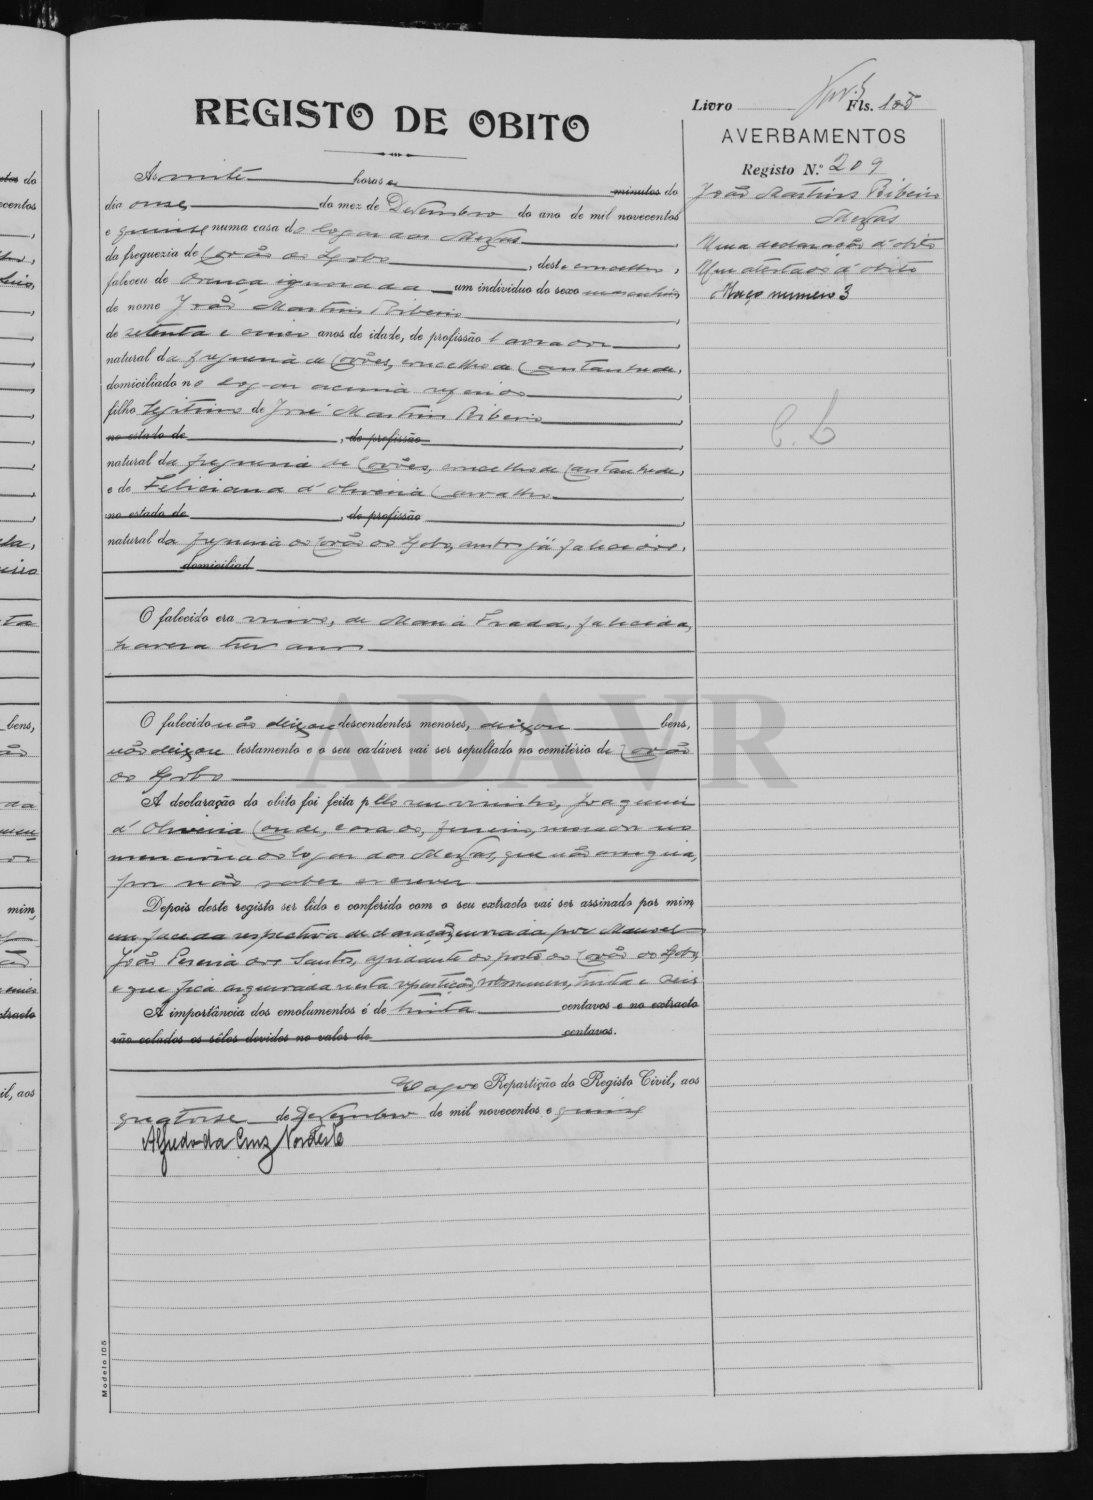 Livro Fls. 105
REGISTO DE OBITO
AVERBAMENTOS
Registo N.º 209
João Martins Ribeiro
Mezas
Uma declaração d'obito
Um atestado d'obito
Maço numero 3
C. L
Ás horas e minutos do
dia onse do mez de Dezembro do ano de mil novecentos
e quinse numa casa do logar das Mezas
da freguezia de Covão do Lobo, deste concelho,
faleceu de doença ignorada um individuo do sexo masculino
de nome João Martins Ribeiro
de setenta e cinco anos de idade, de profissão lavrador
natural da freguesia de Covões, concelho de Cantanhede,
domiciliado no logar acima referido
filho legitimo de José Martins Ribeiro
no estado de , de profissão
natural da freguesia de Covões, concelho de Cantanhede,
e de Feliciana d'Oliveira Carvalho
no estado de , de profissão
natural da freguesia do Covão do Lobo, ambos já falecidos.
domiciliad
O falecido era viuvo, de Maria Frada, falecida,
havera tres anos
O falecido não deixou descendentes menores, deixou bens,
não deixou testamento e o seu cadáver vai ser sepultado no cemitério de Covão
do Lobo
A declaração do obito foi feita pelo seu visinho, Joaquim
d'Oliveira Conde, casado, ferreiro, morador no
mencionado logar das Mezas, que não assigna,
por não saber escrever
Depois deste registo ser lido e conferido com o seu extracto vai ser assinado por mim
em face da respectiva declaração, enviada por Manuel
João Pereira dos Santos, ajudante do posto do Covão do Lobo,
e que fica arquivada nesta repartição, trinta e seis
A importância dos emolumentos é de trinta centavos e no extracto
vão colados os sêlos devidos no valor de centavos.
Repartição do Registo Civil, aos
quatorse de Dezembro de mil novecentos e quinse
Alfredo da Cruz Nordeste
Modelo 105
ADAVR